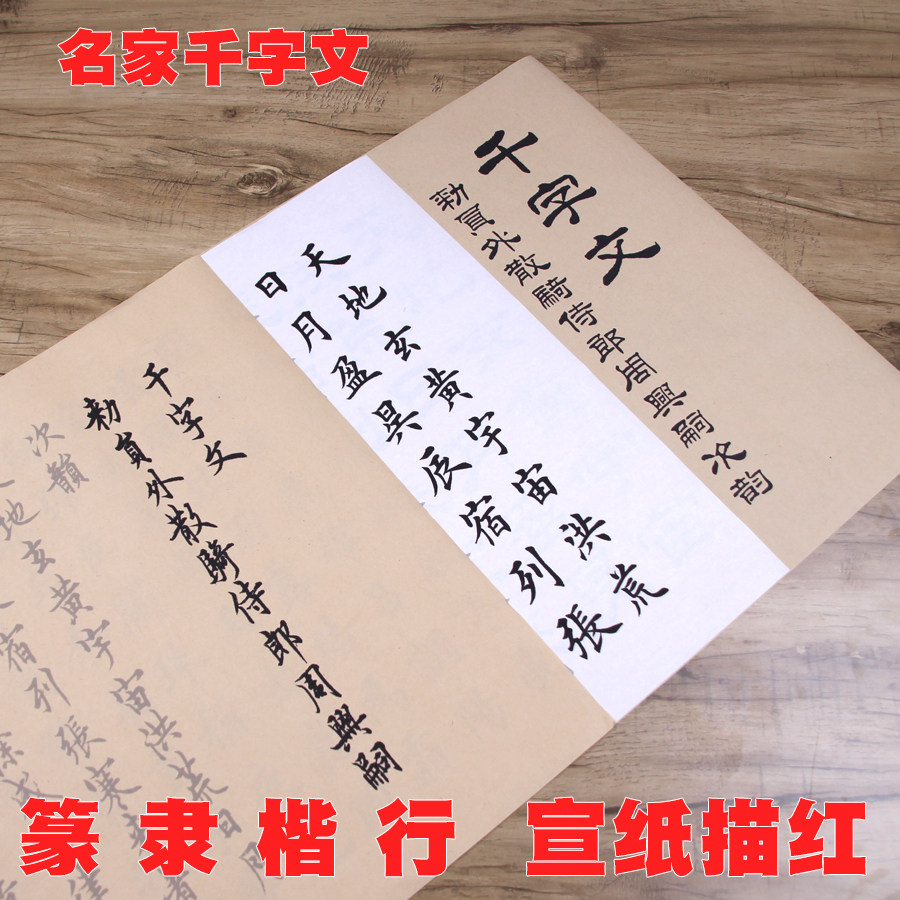 名家千字文
千字文
勑員外散騎侍郎周興嗣次韵
天地玄黄宇宙洪荒
日月盈昃辰宿列張
千字文
勑員外散騎侍郎周興嗣
次韻
地玄黄宇宙洪荒日月
宿列張寒
餘成
篆隶楷行 宣纸描红